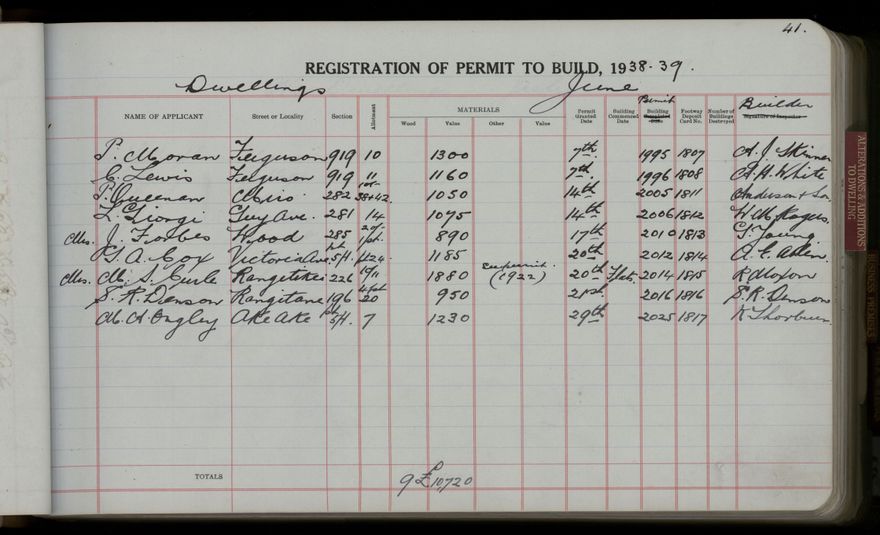 41.
REGISTRATION OF PERMIT TO BUILD, 1938-39.
Dwellings June
NAME OF APPLICANT Street or Locality Section Allotment MATERIALS Wood Value Other Value Permit Granted Date Building Commenced Date Permit Building Completed Date Footway Deposit Card No. Number of Buildings Destroyed Builder Signature of Inspector
P. Moran Ferguson 919 10 1300 7th 1995 1807 A. J. Skinner
C. Lewis Ferguson 919 11 1160 7th. 1996 1808 A. H. White
P. Miro 282 38+42 1050 14th 2005 1811 Anderson & Son
L. Giorgi Guy Ave. 281 14 1095 14th 2006 1812
Mrs. J. Forbes Wood 285 890 17th 2010 1813 G. Young
G. A. Cox Victoria Ave pt 5/4. 1185 20th 2012 1814 A. E.
Mrs. M. S. Curle Rangitikei 226 19/11 1880 (1922) 20th Flats. 2014 1815 R Moxon
S. R. Denson Rangitane 196 20 950 21st. 2016 1816 S. R. Denson
M. H. Ongley Ake Ake pt 5/4. 7 1230 29th 2025 1817 K Thorburn
TOTALS 9 £10,720
ALTERATIONS & ADDITIONS TO DWELLING
BUSINESS PREMISES